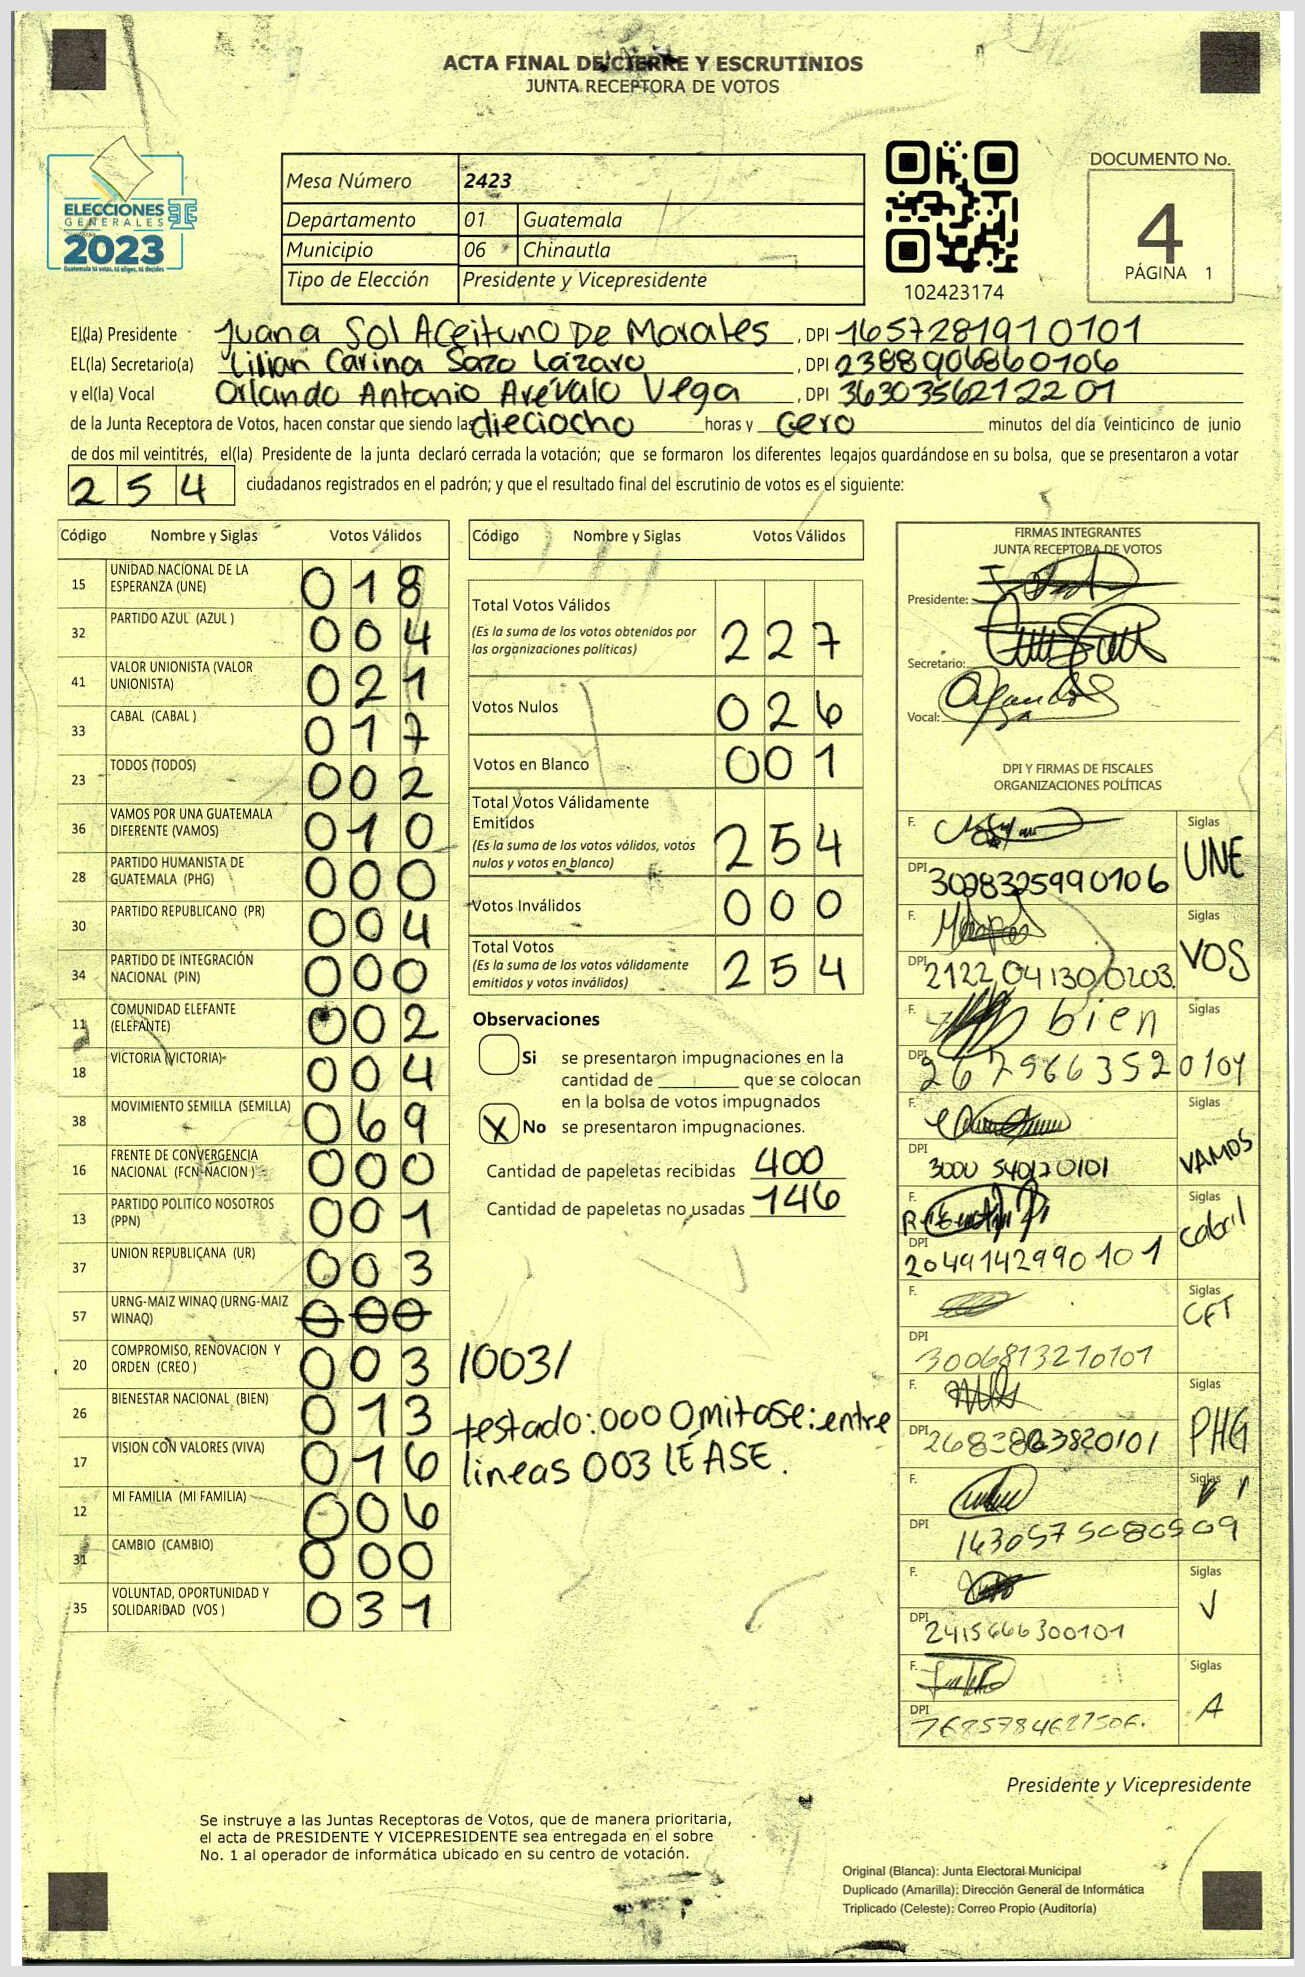 ACTA FINAL DE CIERRE Y ESCRUTINIOS
JUNTA RECEPTORA DE VOTOS
ELECCIONES
GENERALES
2023
Guatemala tú votas, tú eliges, tú decides
Mesa Número 2423
Departamento 01 Guatemala
Municipio 06 Chinautla
Tipo de Elección Presidente y Vicepresidente
102423174
DOCUMENTO No.
4
PÁGINA 1
El(la) Presidente Juana Sol Aceituno De Morales, DPI 1657281910101
EL(la) Secretario(a) Lilian Carina Sazo Lázaro, DPI 2388906860106
y el(la) Vocal Orlando Antonio Arévalo Vega, DPI 3630356212201
de la Junta Receptora de Votos, hacen constar que siendo las dieciocho horas y cero minutos del día veinticinco de junio
de dos mil veintitrés, el(la) Presidente de la junta declaró cerrada la votación; que se formaron los diferentes legajos guardándose en su bolsa, que se presentaron a votar
254 ciudadanos registrados en el padrón; y que el resultado final del escrutinio de votos es el siguiente:
Código Nombre y Siglas Votos Válidos
15 UNIDAD NACIONAL DE LA ESPERANZA (UNE) 018
32 PARTIDO AZUL (AZUL ) 004
41 VALOR UNIONISTA (VALOR UNIONISTA) 021
33 CABAL (CABAL ) 017
23 TODOS (TODOS) 002
36 VAMOS POR UNA GUATEMALA DIFERENTE (VAMOS) 010
28 PARTIDO HUMANISTA DE GUATEMALA (PHG) 000
30 PARTIDO REPUBLICANO (PR) 004
34 PARTIDO DE INTEGRACIÓN NACIONAL (PIN) 000
11 COMUNIDAD ELEFANTE (ELEFANTE) 002
18 VICTORIA (VICTORIA) 004
38 MOVIMIENTO SEMILLA (SEMILLA) 069
16 FRENTE DE CONVERGENCIA NACIONAL (FCN-NACION ) 000
13 PARTIDO POLITICO NOSOTROS (PPN) 001
37 UNION REPUBLICANA (UR) 003
57 URNG-MAIZ WINAQ (URNG-MAIZ WINAQ) 000
20 COMPROMISO, RENOVACION Y ORDEN (CREO ) 003
26 BIENESTAR NACIONAL (BIEN) 013
17 VISION CON VALORES (VIVA) 016
12 MI FAMILIA (MI FAMILIA) 006
31 CAMBIO (CAMBIO) 000
35 VOLUNTAD, OPORTUNIDAD Y SOLIDARIDAD (VOS ) 031
Código Nombre y Siglas Votos Válidos
Total Votos Válidos 227
(Es la suma de los votos obtenidos por
las organizaciones políticas)
Votos Nulos 026
Votos en Blanco 001
Total Votos Válidamente
Emitidos 254
(Es la suma de los votos válidos, votos
nulos y votos en blanco)
Votos Inválidos 000
Total Votos 254
(Es la suma de los votos válidamente
emitidos y votos inválidos)
Observaciones
Si se presentaron impugnaciones en la
cantidad de ________ que se colocan
en la bolsa de votos impugnados
X No se presentaron impugnaciones.
Cantidad de papeletas recibidas 400
Cantidad de papeletas no usadas 146
/003/
testado:000 Omitase:entre
lineas 003 LÉASE.
FIRMAS INTEGRANTES
JUNTA RECEPTORA DE VOTOS
Presidente:
Secretario:
Vocal:
DPI Y FIRMAS DE FISCALES
ORGANIZACIONES POLÍTICAS
F. Siglas UNE
DPI 3028325990106
F. Siglas VOS
DPI 2122041300203
F. bien Siglas
DPI 2679663520104
F. Siglas VAMOS
DPI 3000540120101
F. Siglas cabal
DPI 2049142990101
F. Siglas CFT
DPI 3006813210101
F. Siglas PHG
DPI
F. Siglas
DPI
F. Siglas V
DPI 2415666300101
F. Siglas A
DPI
Presidente y Vicepresidente
Se instruye a las Juntas Receptoras de Votos, que de manera prioritaria,
el acta de PRESIDENTE Y VICEPRESIDENTE sea entregada en el sobre
No. 1 al operador de informática ubicado en su centro de votación.
Original (Blanca): Junta Electoral Municipal
Duplicado (Amarilla): Dirección General de Informática
Triplicado (Celeste): Correo Propio (Auditoría)